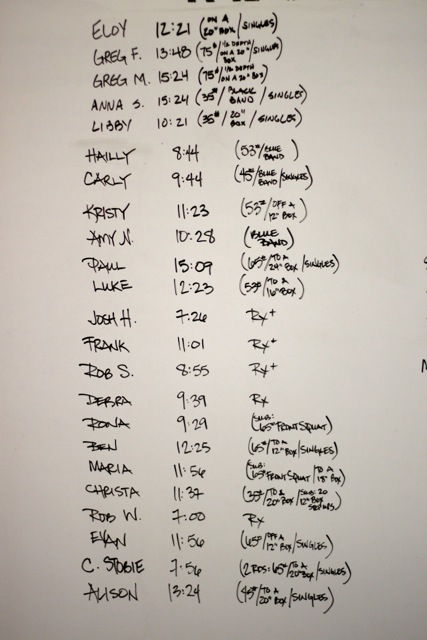 ELOY 12:21 (ON A 20" BOX/SINGLES)
GREG F. 13:48 (75#/½ DEPTH/ON A 20" BOX/SINGLES)
GREG M. 15:24 (75#/½ DEPTH/ON A 20" BOX)
ANNA S. 15:24 (35#/BLACK BAND/SINGLES)
LIBBY 10:21 (35#/20" BOX/SINGLES)
HAILLY 8:44 (53#/BLUE BAND)
CARLY 9:44 (45#/BLUE BAND/SINGLES)
KRISTY 11:23 (53#/OFF A 12" BOX)
AMY N. 10:28 (BLUE BAND)
PAUL 15:09 (65#/TO A 24" BOX/SINGLES)
LUKE 12:23 (53#/TO A 16" BOX)
JOSH H. 7:26 RX+
FRANK 11:01 RX+
ROB S. 8:55 RX+
DEBRA 9:39 RX
RONA 9:29 (SUB: 65# FRONT SQUAT)
BEN 12:25 (65#/TO A 12" BOX/SINGLES)
MARIA 11:56 (SUB: 65# FRONT SQUAT/TO A 18" BOX)
CHRISTA 11:37 (35#/TO A 20" BOX/SUB: 20 12" BOX STEP UPS)
ROB W. 7:00 RX
EVAN 11:56 (65#/OFF A 12" BOX/SINGLES)
C. STOBIE 7:56 (2 RDS: 65#/TO A 20" BOX/SINGLES)
ALISON 13:24 (45#/TO A 20" BOX/SINGLES)